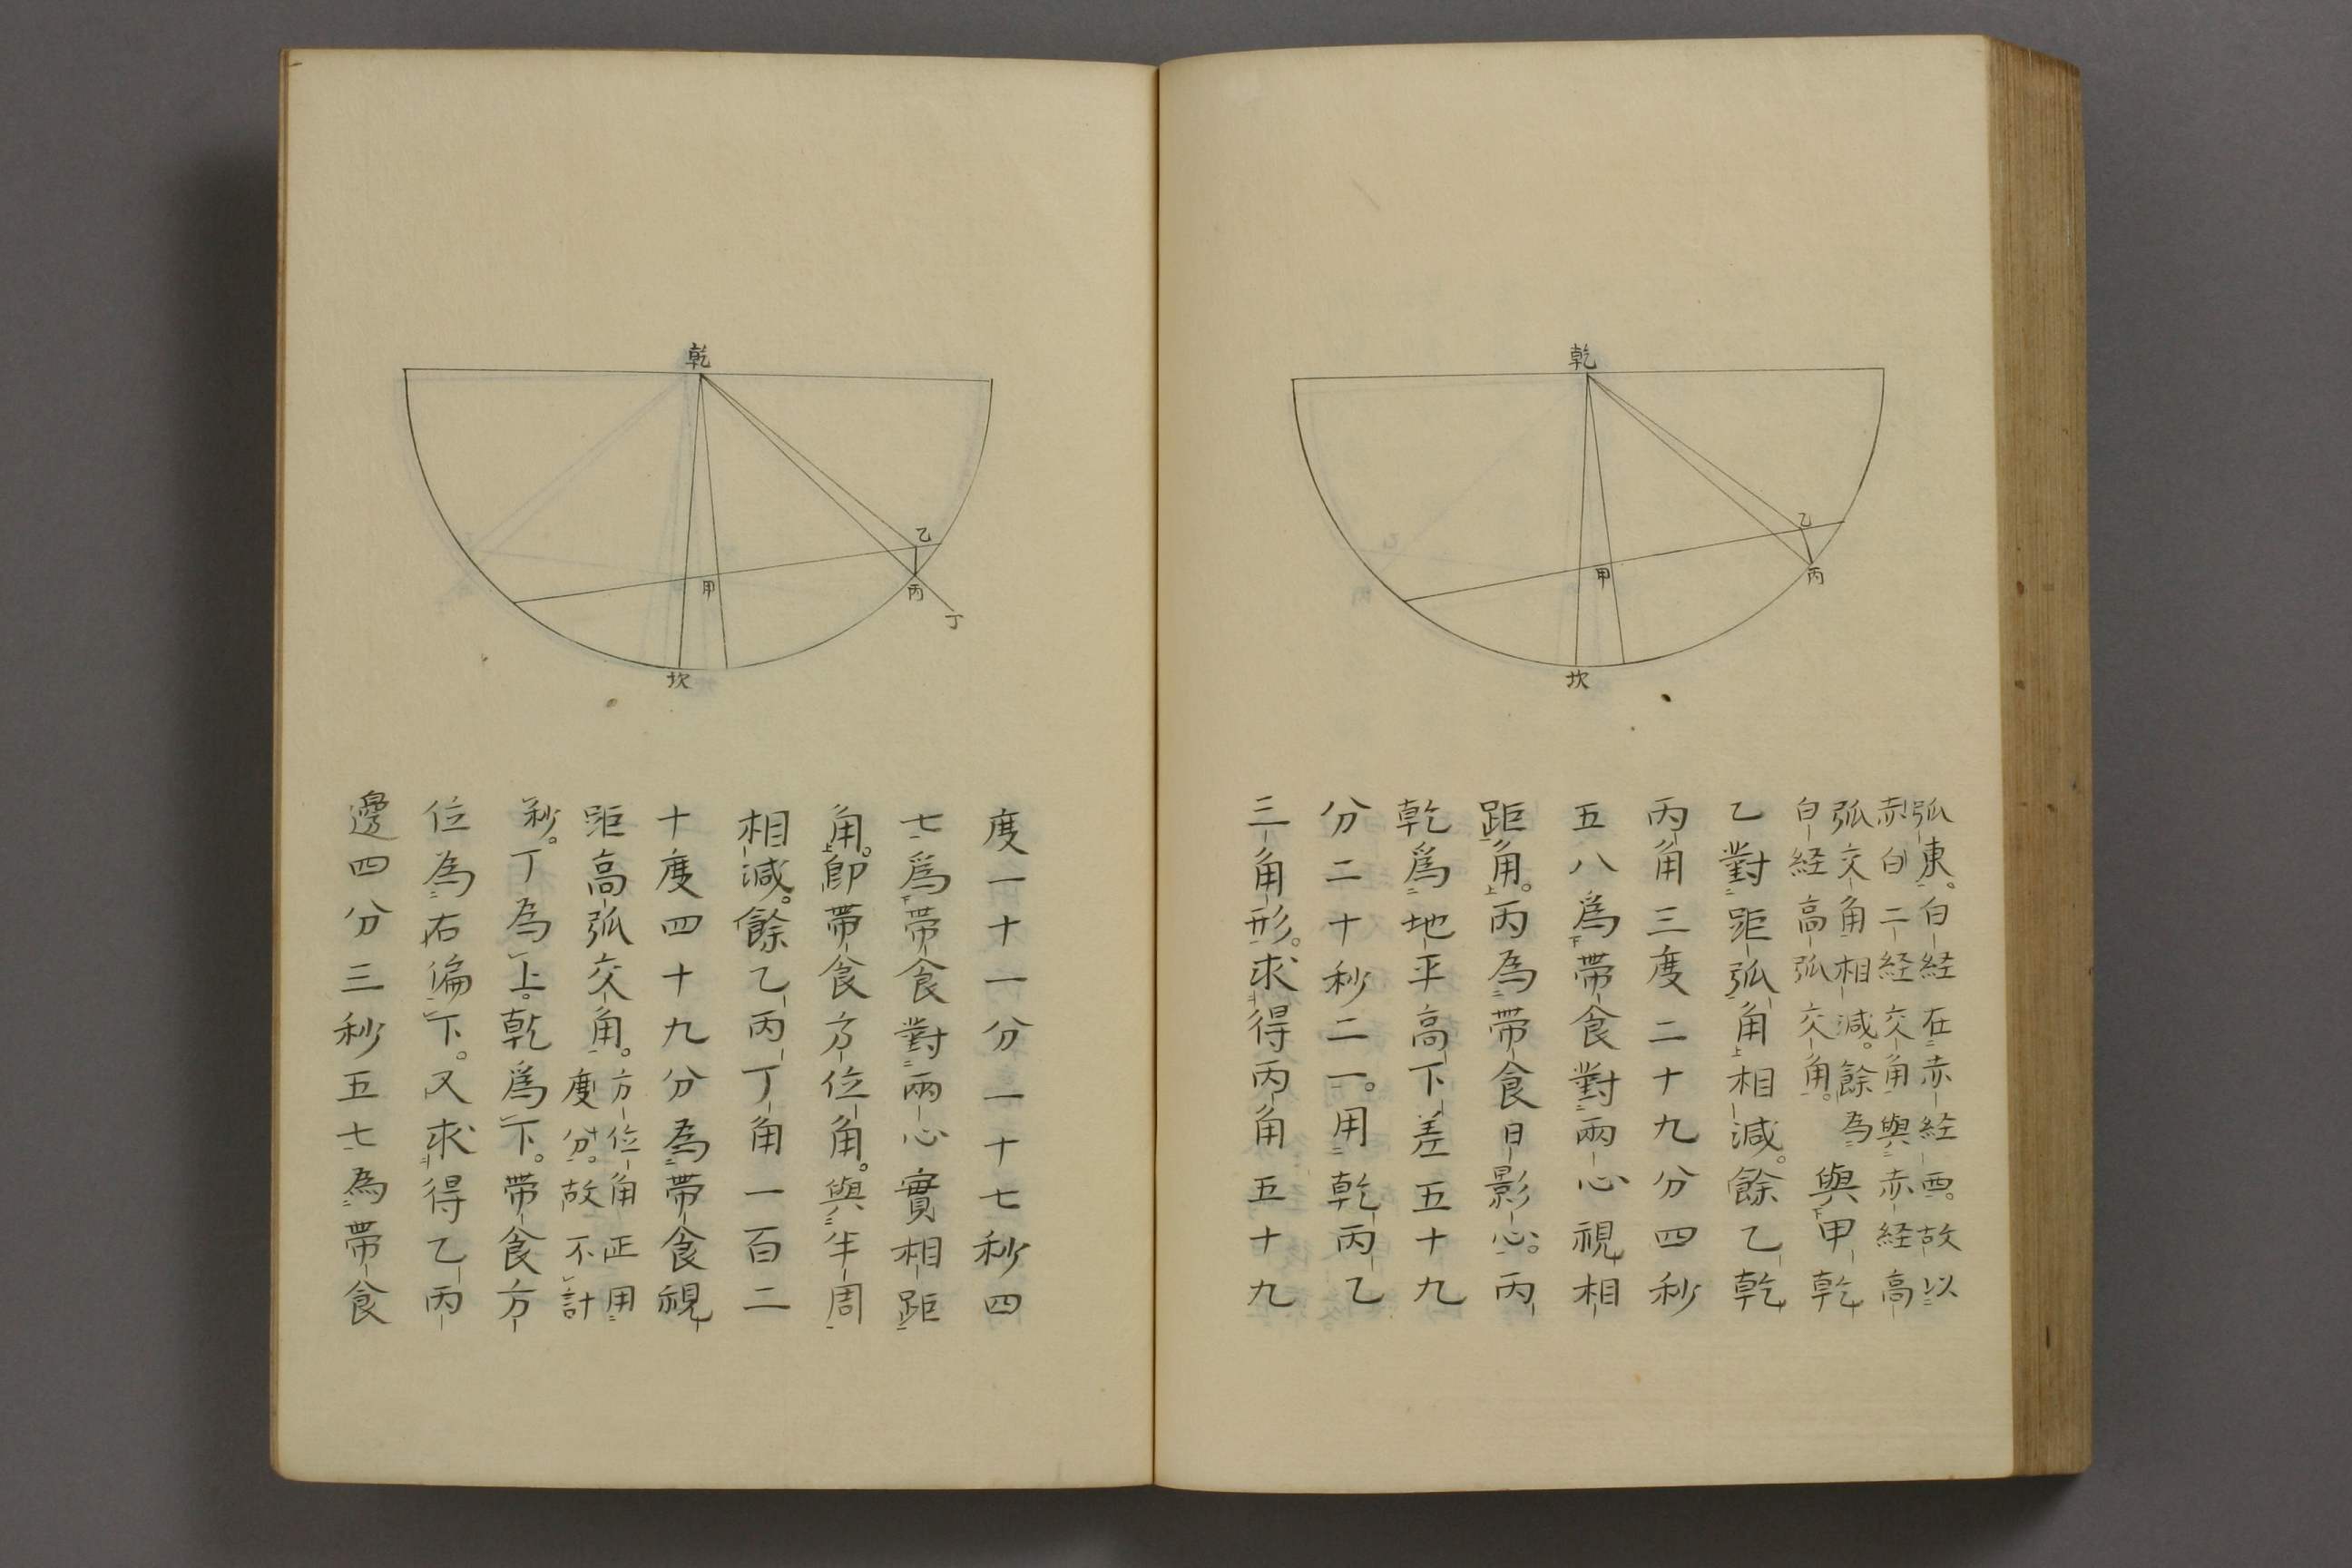 乾
乙
甲
丙
坎
弧東。白経在赤経西。故以
赤白二経交角與赤経高
弧交角相減。餘為
白経高弧交角。
與甲乾
乙對距弧角相減。餘乙乾
丙角三度二十九分四秒
五八爲帯食對兩心視相
距角。丙為帯食日影心。丙
乾爲地平高下差五十九
分二十秒二一。用乾丙乙
三角形。求得丙角五十九
乾
乙
甲
丙
丁
坎
度一十一分一十七秒四
七爲帯食對兩心實相距
角。卽帯食方位角。與半周
相減。餘乙丙丁角一百二
十度四十九分為帯食視
距高弧交角。
方位角正用
度分。故不計
秒。丁為上。乾爲下。帯食方
位為右偏下。又求得乙丙
邊四分三秒五七為帯食